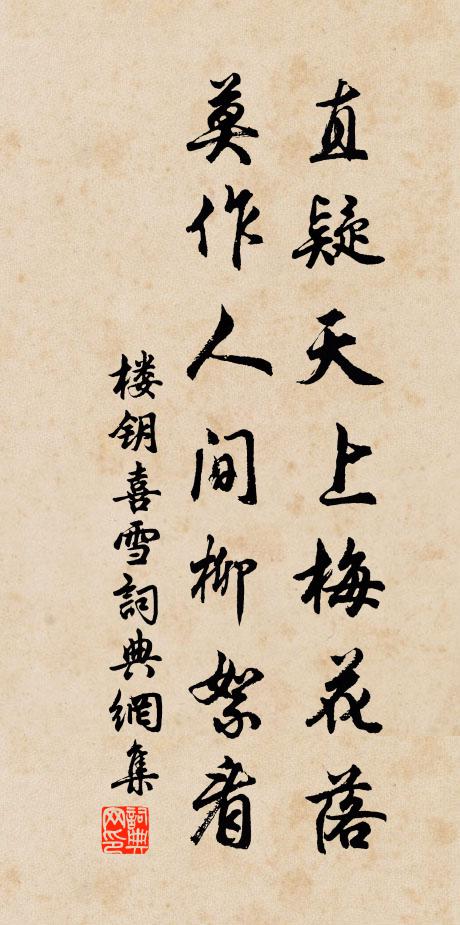 直疑天上梅花落
莫作人间柳絮看
楼钥喜雪詞典網集
詞典网印